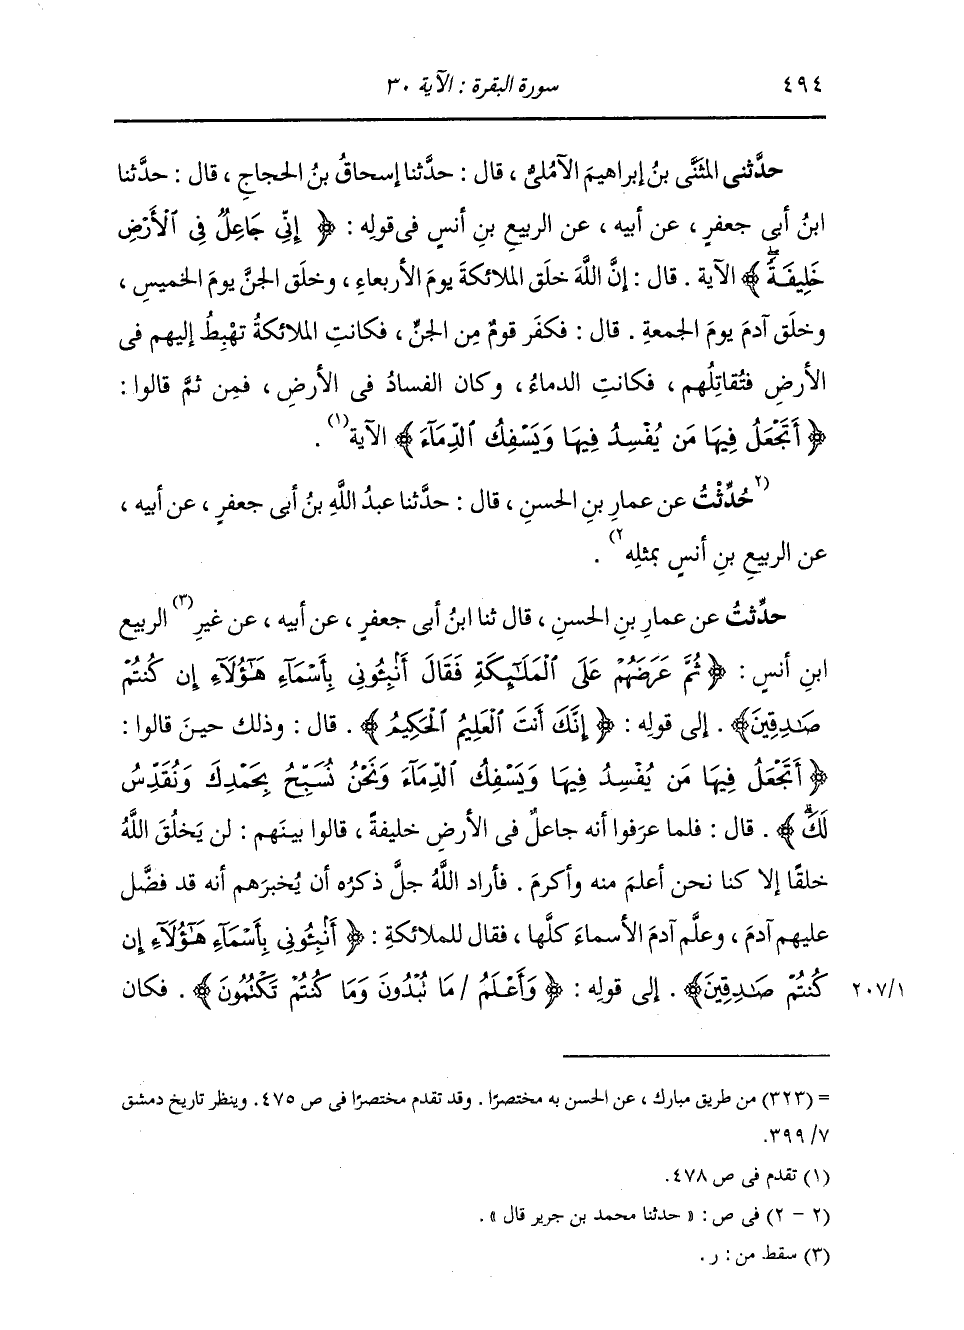 ٤٩٤ سورة البقرة : الآية ٣٠
حدَّثنى المثَنَّى بنُ إبراهيمَ الآمُلىُّ ، قال : حدَّثنا إسحاقُ بنُ الحجاجِ ، قال : حدَّثنا
ابنُ أبى جعفرٍ ، عن أبيه ، عن الربيعِ بنِ أنسٍ فى قولِه : ﴿ إِنِّي جَاعِلٌ فِي ٱلْأَرْضِ
خَلِيفَةًۖ ﴾ الآية . قال : إنَّ اللَّهَ خلَق الملائكةَ يومَ الأربعاءِ ، وخلَق الجنَّ يومَ الخميسِ ،
وخلَق آدمَ يومَ الجمعةِ . قال : فكفَر قومٌ مِن الجنِّ ، فكانتِ الملائكةُ تهْبِطُ إليهم فى
الأرضِ فتُقاتِلُهم ، فكانتِ الدماءُ ، وكان الفسادُ فى الأرضِ ، فمِن ثمَّ قالوا :
﴿ أَتَجْعَلُ فِيهَا مَن يُفْسِدُ فِيهَا وَيَسْفِكُ ٱلدِّمَآءَ ﴾ الآية(١) .
(٢حُدِّثْتُ عن عمارِ بنِ الحسنِ ، قال : حدَّثنا عبدُ اللَّهِ بنُ أبى جعفرٍ ، عن أبيه ،
عن الربيعِ بنِ أنسٍ بمثلِه٢) .
حدِّثتُ عن عمارِ بنِ الحسنِ ، قال ثنا ابنُ أبى جعفرٍ ، عن أبيه ، عن غيرِ(٣) الربيعِ
ابنِ أنسٍ : ﴿ ثُمَّ عَرَضَهُمْ عَلَى ٱلْمَلَٰٓئِكَةِ فَقَالَ أَنۢبِـُٔونِى بِأَسْمَآءِ هَٰٓؤُلَآءِ إِن كُنتُمْ
صَٰدِقِينَ﴾ . إلى قولِه : ﴿ إِنَّكَ أَنتَ ٱلْعَلِيمُ ٱلْحَكِيمُ ﴾ . قال : وذلك حينَ قالوا :
﴿ أَتَجْعَلُ فِيهَا مَن يُفْسِدُ فِيهَا وَيَسْفِكُ ٱلدِّمَآءَ وَنَحْنُ نُسَبِّحُ بِحَمْدِكَ وَنُقَدِّسُ
لَكَۖ ﴾ . قال : فلما عرَفوا أنه جاعلٌ فى الأرضِ خليفةً ، قالوا بينَهم : لن يَخلُقَ اللَّهُ
خلقًا إلا كنا نحن أعلمَ منه وأكرمَ . فأراد اللَّهُ جلَّ ذكرُه أن يُخبرَهم أنه قد فضَّل
عليهم آدمَ ، وعلَّم آدمَ الأسماءَ كلَّها ، فقال للملائكةِ : ﴿ أَنۢبِـُٔونِى بِأَسْمَآءِ هَٰٓؤُلَآءِ إِن
كُنتُمْ صَٰدِقِينَ﴾ . إلى قولِه : ﴿ وَأَعْلَمُ / مَا تُبْدُونَ وَمَا كُنتُمْ تَكْتُمُونَ ﴾ . فكان
٢٠٧/١
= (٣٢٣) من طريق مبارك ، عن الحسن به مختصرًا . وقد تقدم مختصرًا فى ص ٤٧٥. وينظر تاريخ دمشق
٧/ ٣٩٩.
(١) تقدم فى ص ٤٧٨.
(٢ - ٢) فى ص : « حدثنا محمد بن جرير قال » .
(٣) سقط من : ر .